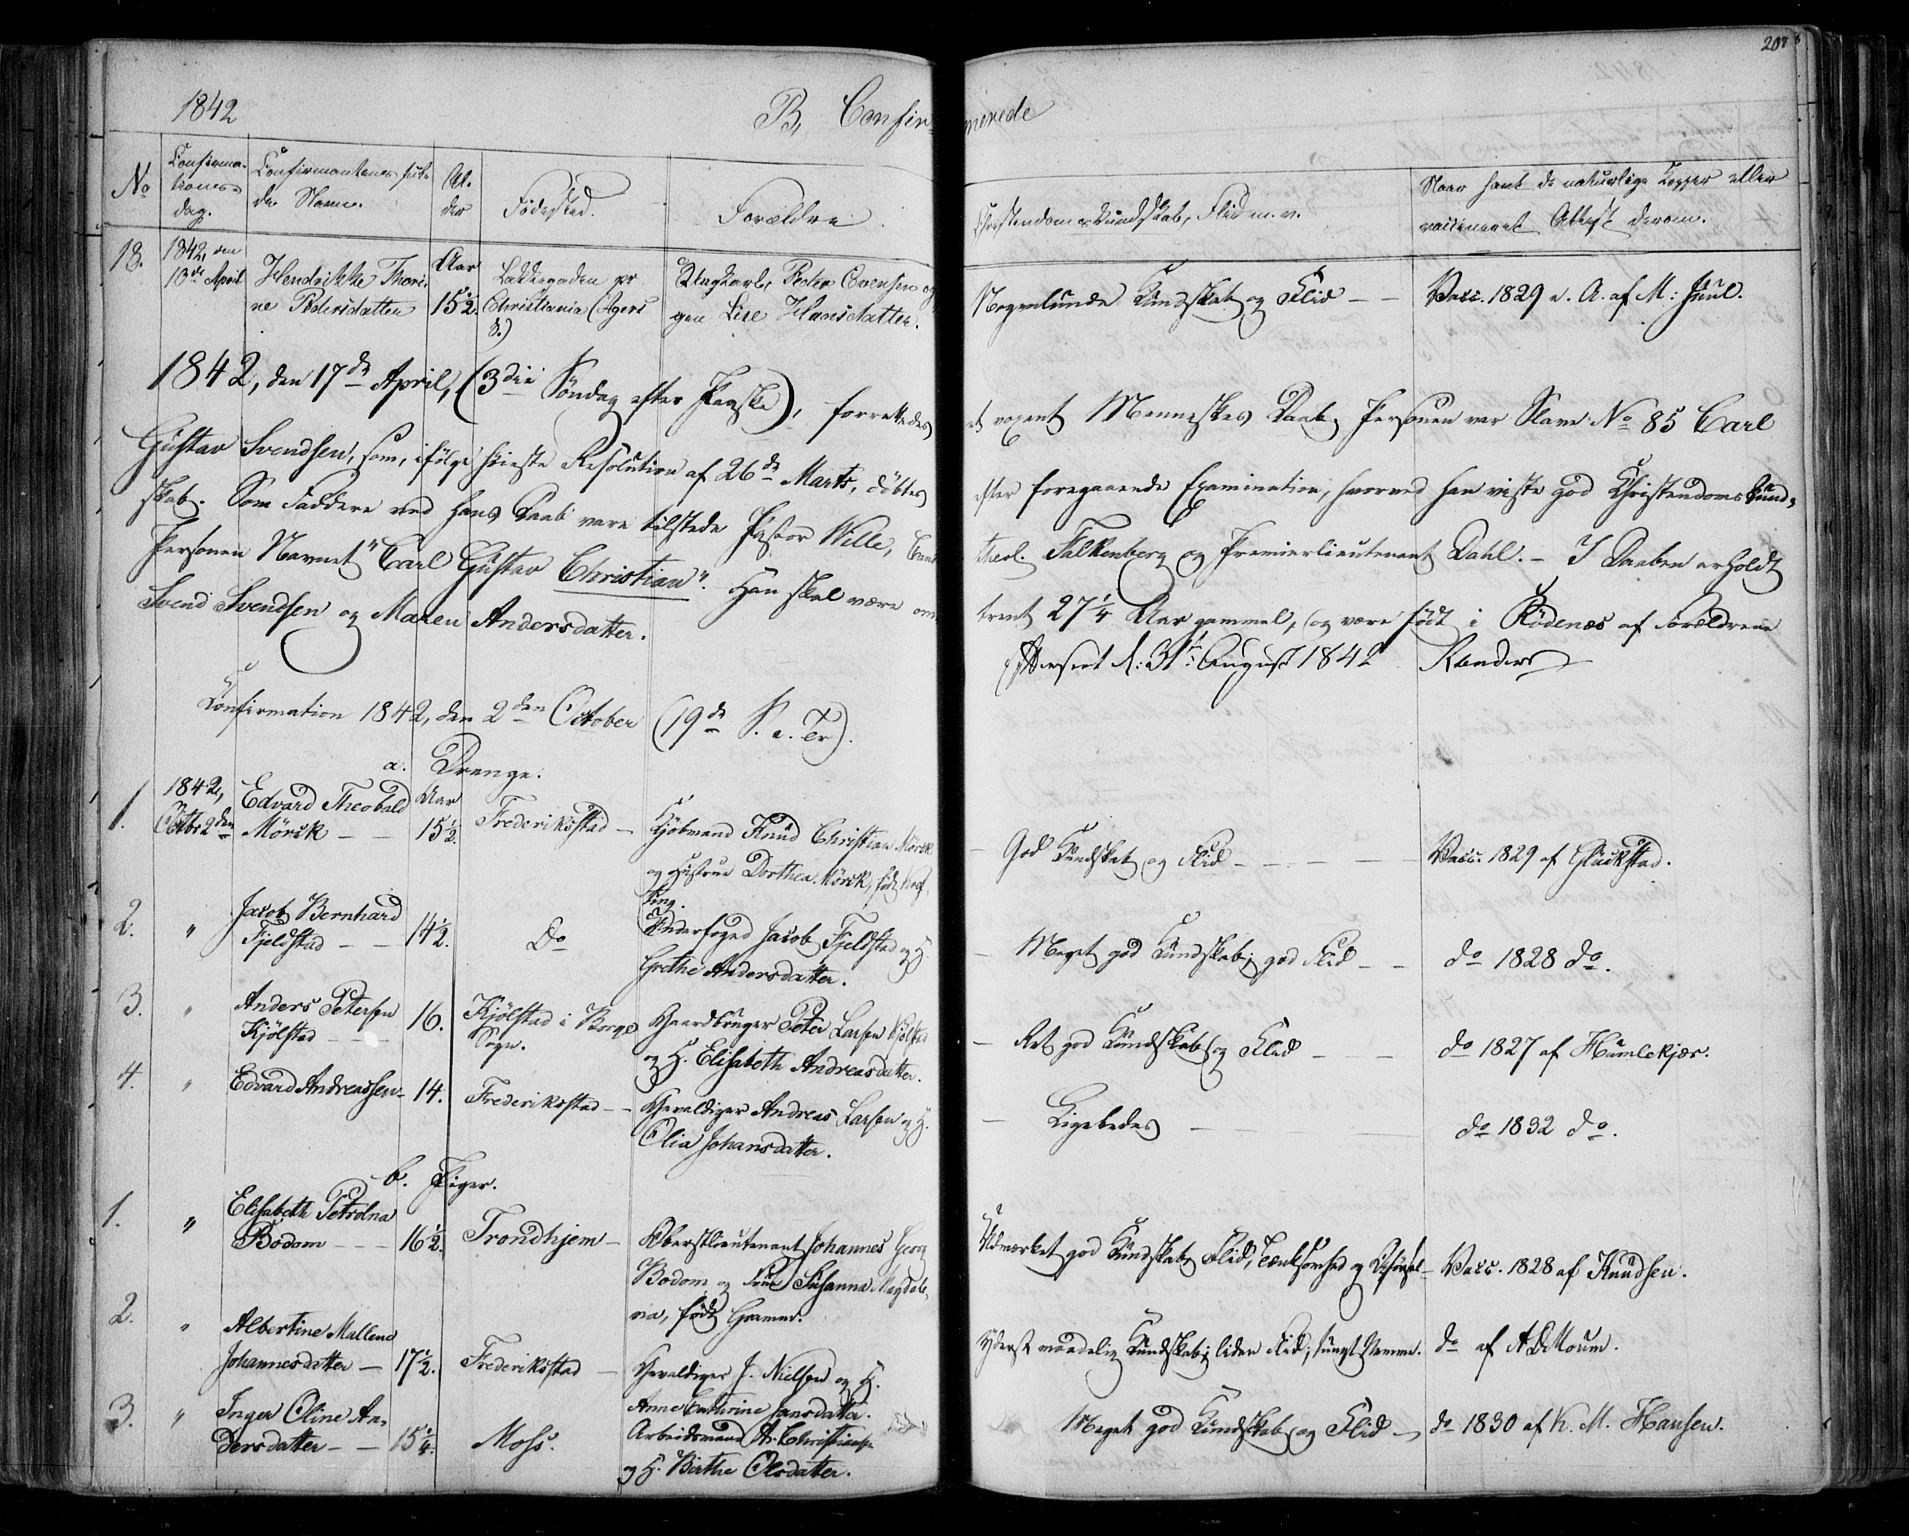 208
1842 B, Confirmerede
No
Confirmationsdag.
Confirmantens fulde Navn.
Alder
Födested.
Forældre.
Christendoms Kundskab, Flid m. v.
Naar havt de naturlige Kopper eller vaccineret. Attest derom.
18. 1842, den 13de April Hendrikke Thorine Pedersdatter Aar 15½ Christiania (Agers S.) Peder Evensen og Lise Hansdatter. Nogenlunde Kundskab og Flid — — Vacc. 1829 e. A. af M: Juul.
1842, den 17de April, (3die Söndag efter Paaske), forrettedes et voxent Menneskes Daab, Personen var Slave No 85 Carl
Gustav Svendsen, som, ifölge höieste Resolution af 26de Marts, döbtes efter foregaaende Examination, hvorved han viste god Christendoms Kund-
skab. Som Faddere ved hans Daab vare tilstede Pastor Wille, Cand. theol. Falkenberg og Premierlieutenant Dahl. — I Daaben erholdt
Personen Navnet "Carl Gustav Christian". Han skal være omtrent 27¼ Aar gammel, og være född i Rödenæs af Forældrene
Svend Svendsen og Maren Andersdatter.
d: 31te August 1842
Confirmation 1842, den 2den October (19de S. e. Tr).
a. Drenge.
1. 1842, Octbr 2den Edvard Theobald Mörck — — Aar 15½ Frederikstad — Kjöbmand Knud Christian Mörck og Hustrue Dorthea Mörck, föd — God Kundskab og Flid — — — — Vacc. 1829 af Glückstad.
2. " Jacob Bernhard Fjeldstad — — 14½. Do Underfoged Jacob Fjeldstad og H. Grethe Andersdatter. — Meget god Kundskab; god Flid — — do 1828 do.
3. " Anders Petersen Kjölstad — — 16. Kjölstad i Borge Sogn. Gaardbruger Peter Larsen Kjölstad og H. Elisabeth Andreasdatter. — Ret god Kundskab og Flid — — do 1827 af Humlekjær.
4. " Edvard Andreassen — 14. Frederikstad — — Gevaldiger Andreas Larsen og H. Olia Johansdatter. — Ligeledes — — do 1832 do.
b. Piger.
1. " Elisabeth Petrolna Bodom — — — 16½. Trondhjem — Oberstlieutenant Johannes Georg Bodom og Frue Susanna Magdalena, född Gramm. Udmærket god Kundskab, Flid, Tænksomhed og Opförsel — Vacc. 1828 af Knudsen.
2. " Albertine Mallene Johannesdatter — 17½. Frederikstad — Gevaldiger J. Nielsen og H. Anne Cathrine Jansdatter. Yderst maadelig Kundskab; liden Flid; tungt Nemme. do af A. D. Moum.
3. " Inger Oline Andersdatter — — 15¼. Moss. Arbeidsmand A. Christiansen og H. Birthe Olsdatter. Meget god Kundskab og Flid — do 1830 af K. M. Hansen.